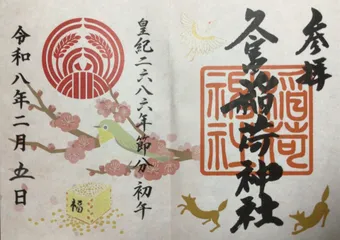 参拝
久富稲荷神社
稲荷
神社
皇紀二六八六年節分初午
令和八年二月五日
福